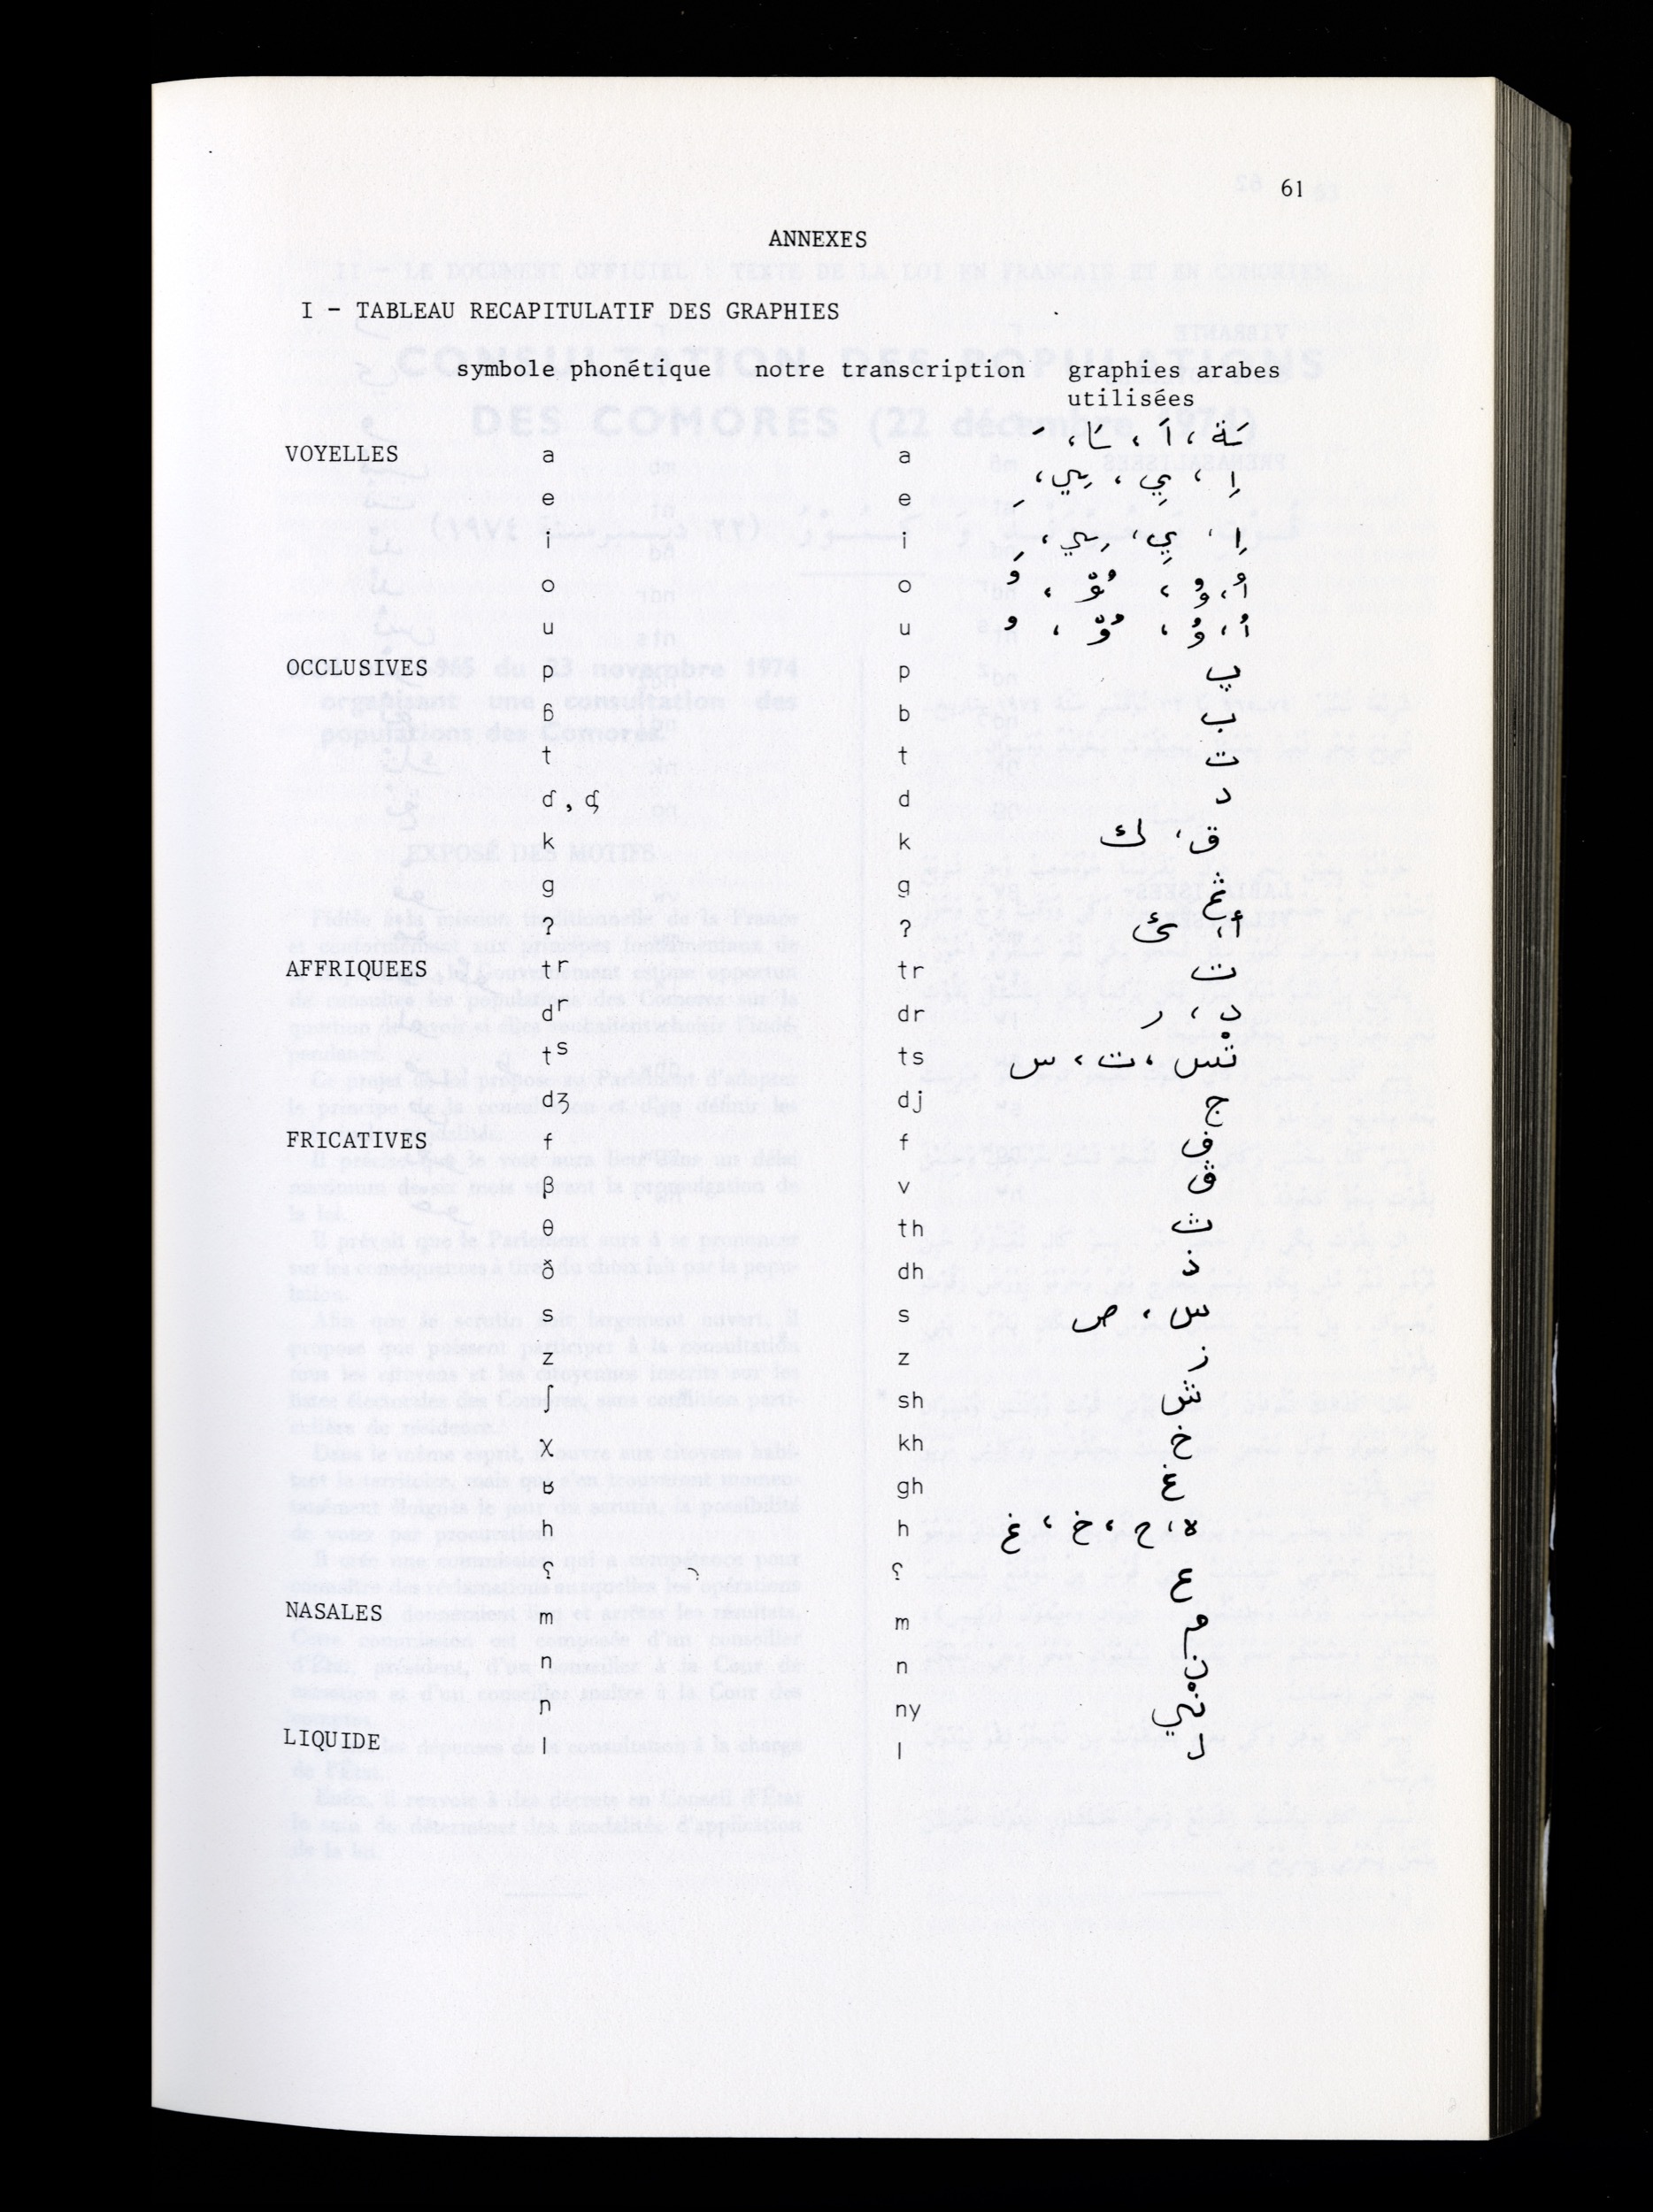 61
ANNEXES
I - TABLEAU RECAPITULATIF DES GRAPHIES
symbole phonétique notre transcription graphies arabes
utilisées
VOYELLES a a ـَة ، اَ ، ـَا ، ـَ
e e اِ ، يِ ، ـِي ، ـِ
i i اِ ، يِ ، ـِي ، ـِ
o o اُ ، وُ ،
u u اُ ، وُ ، ـُوّ ، ـُ
OCCLUSIVES p p پ
ɓ b ب
t t ت
ɗ , ᶑ d د
k k ق ، ك
g g ݝ
ʔ ʔ أ ، ئ
AFFRIQUEES tr tr ت
dʳ dr د ، ر
tˢ ts تْس ، ت ، س
dʒ dj ج
FRICATIVES f f ف
β v ڤ
θ th ث
ð dh ذ
s s س ، ص
z z ز
ʃ sh ش
χ kh خ
ʁ gh غ
h h ه ، ح ، خ ، غ
ʕ ʕ ع
NASALES m m م
n n ن
ɲ ny نْي
LIQUIDE l l ل